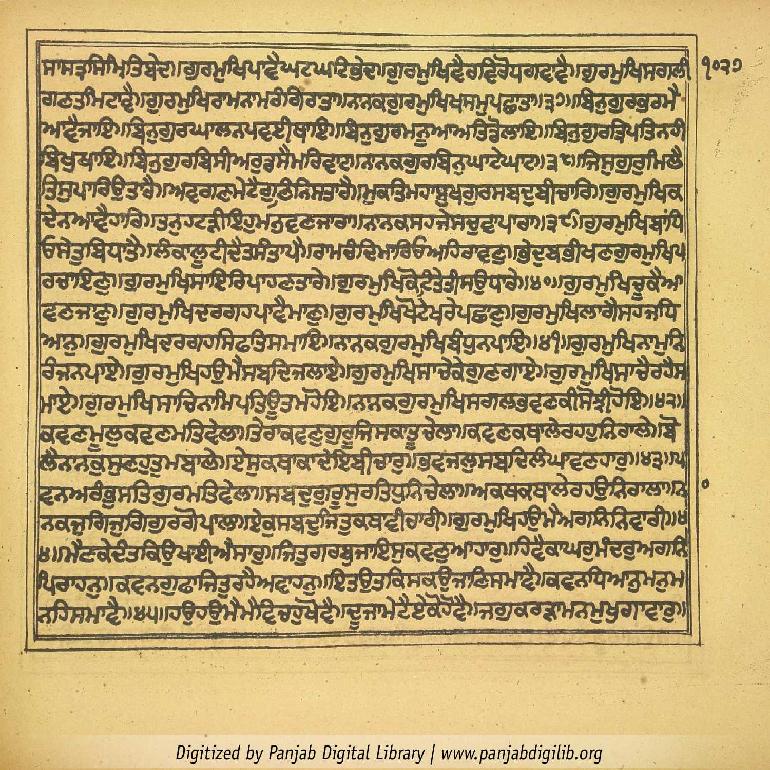 ਸਾਸਤ੍ਰਸਿਮ੍ਰਿਤਿਬੇਦ॥ਗੁਰਮੁਖਿਪਾਵੈਘਟਘਟਿਭੇਦ॥ਗੁਰਮੁਖਿਵੈਰਵਿਰੋਧਗਵਾਵੈ॥ਗੁਰਮੁਖਿਸਗਲੀ ੧੦੨੭
ਗਣਤਮਿਟਾਵੈ॥ਗੁਰਮੁਖਿਰਾਮਨਾਮਰੰਗਿਰਾਤਾ॥ਨਾਨਕਗੁਰਮੁਖਿਖਸਮੁਪਛਾਤਾ॥੩੭॥ਬਿਨੁਗੁਰਭਰਮੈ
ਆਵੈਜਾਇ॥ਬਿਨੁਗੁਰਘਾਲਨਪਵਈਥਾਇ॥ਬਿਨੁਗੁਰਮਨੂਆਅਤਿਡੋਲਾਇ॥ਬਿਨੁਗੁਰਤ੍ਰਿਪਤਿਨਹੀ
ਬਿਖੁਖਾਇ॥ਬਿਨੁਗੁਰਬਿਸੀਅਰੁਡਸੈਮਰਿਵਾਟ॥ਨਾਨਕਗੁਰਬਿਨੁਘਾਟੇਘਾਟ॥੩੮॥ਜਿਸੁਗੁਰੁਮਿਲੈ
ਤਿਸੁਪਾਰਿਉਤਾਰੈ॥ਅਵਗਣਮੇਟੈਗੁਣਿਨਿਸਤਾਰੈ॥ਮੁਕਤਿਮਹਾਸੁਖਗੁਰਸਬਦੁਬੀਚਾਰਿ॥ਗੁਰਮੁਖਿਕ
ਦੇਨਆਵੈਹਾਰਿ॥ਤਨੁਹਟੜੀਇਹੁਮਨੁਵਣਜਾਰਾ॥ਨਾਨਕਸਹਜੇਸਚੁਵਾਪਾਰਾ॥੩੯॥ਗੁਰਮੁਖਿਬਾਂਧਿ
ਓਸੇਤੁਬਿਧਾਤੈ॥ਲੰਕਾਲੂਟੀਦੈਤਸੰਤਾਪੈ॥ਰਾਮਚੰਦਿਮਾਰਿਓਅਹਿਰਾਵਣੁ॥ਭੇਦੁਬਭੀਖਣਗੁਰਮੁਖਿਪ
ਰਚਾਇਣੁ॥ਗੁਰਮੁਖਿਸਾਇਰਿਪਾਹਣਤਾਰੇ॥ਗੁਰਮੁਖਿਕੋਟਿਤੇਤੀਸਉਧਾਰੇ॥੪੦॥ਗੁਰਮੁਖਿਚੂਕੈਆ
ਵਣਜਾਣੁ॥ਗੁਰਮੁਖਿਦਰਗਹਪਾਵੈਮਾਣੁ॥ਗੁਰਮੁਖਿਖੋਟੇਖਰੇਪਛਾਣੁ॥ਗੁਰਮੁਖਿਲਾਗੈਸਹਜਧਿ
ਆਨੁ॥ਗੁਰਮੁਖਿਦਰਗਹਸਿਫਤਿਸਮਾਇ॥ਨਾਨਕਗੁਰਮੁਖਿਬੰਧੁਨਪਾਇ॥੪੧॥ਗੁਰਮੁਖਿਨਾਮੁਨਿ
ਰੰਜਨਪਾਏ॥ਗੁਰਮੁਖਿਹਉਮੈਸਬਦਿਜਲਾਏ॥ਗੁਰਮੁਖਿਸਾਚੇਕੇਗੁਣਗਾਏ॥ਗੁਰਮੁਖਿਸਾਚੈਰਹੈਸ
ਮਾਏ॥ਗੁਰਮੁਖਿਸਾਚਿਨਾਮਿਪਤਿਊਤਮਹੋਇ॥ਨਾਨਕਗੁਰਮੁਖਿਸਗਲਭਵਣਕੀਸੋਝੀਹੋਇ॥੪੨॥
ਕਵਣਮੂਲੁਕਵਣਮਤਿਵੇਲਾ॥ਤੇਰਾਕਵਣੁਗੁਰੂਜਿਸਕਾਤੂਚੇਲਾ॥ਕਵਣਕਥਾਲੇਰਹਹੁਨਿਰਾਲੇ॥ਬੋ
ਲੈਨਾਨਕੁਸੁਣਹੁਤੁਮਬਾਲੇ॥ਏਸੁਕਥਾਕਾਦੇਇਬੀਚਾਰੁ॥ਭਵਜਲੁਸਬਦਿਲੰਘਾਵਣਹਾਰੁ॥੪੩॥ਪ
ਵਨਅਰੰਭੁਸਤਿਗੁਰਮਤਿਵੇਲਾ॥ਸਬਦੁਗੁਰੂਸੁਰਤਿਧੁਨਿਚੇਲਾ॥ਅਕਥਕਥਾਲੇਰਹਉਨਿਰਾਲਾ॥ਨਾ
ਨਕਜੁਗਿਜੁਗਿਗੁਰਗੋਪਾਲਾ॥ਏਕੁਸਬਦੁਜਿਤੁਕਥਾਵੀਚਾਰੀ॥ਗੁਰਮੁਖਿਹਉਮੈਅਗਨਿਨਿਵਾਰੀ॥੪
੪॥ਮੈਣਕੇਦੰਤਕਿਉਖਾਈਐਸਾਰੁ॥ਜਿਤੁਗਰਬੁਜਾਇਸੁਕਵਣੁਆਹਾਰੁ॥ਹਿਵੈਕਾਘਰੁਮੰਦਰੁਅਗਨਿ
ਪਿਰਾਹਨੁ॥ਕਵਨਗੁਫਾਜਿਤੁਰਹੈਅਵਾਹਨੁ॥ਇਤਉਤਕਿਸਕਉਜਾਣਿਸਮਾਵੈ॥ਕਵਨਧਿਆਨੁਮਨੁਮ
ਨਹਿਸਮਾਵੈ॥੪੫॥ਹਉਹਉਮੈਮੈਵਿਚਹੁਖੋਵੈ॥ਦੂਜਾਮੇਟੈਏਕੋਹੋਵੈ॥ਜਗੁਕਰੜਾਮਨਮੁਖੁਗਾਵਾਰੁ॥
Digitized by Panjab Digital Library | www.panjabdigilib.org